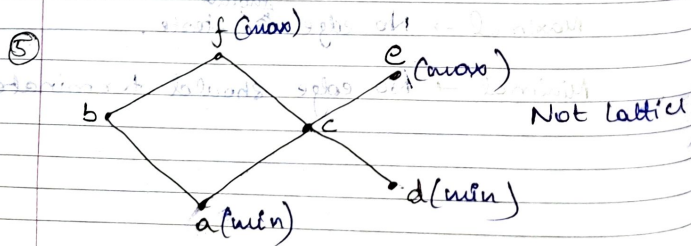 ⑤
f (max)
e (max)
b
c
Not lattice
d (min)
a (min)